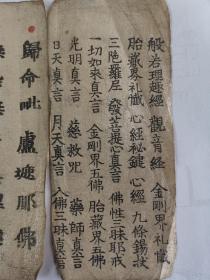 般若理趣經 觀音經 金剛界礼懺
胎蔵界礼懺 心經秘鍵 心經 九條錫杖
三陀羅尼 發菩提心真言 佛性三昧耶戒
一切如來真言 金剛界五佛 胎蔵界五佛
光明真言 慈救咒 藥師真言
日天真言 月天真言 八佛三昧真言
歸命毗盧遮那佛